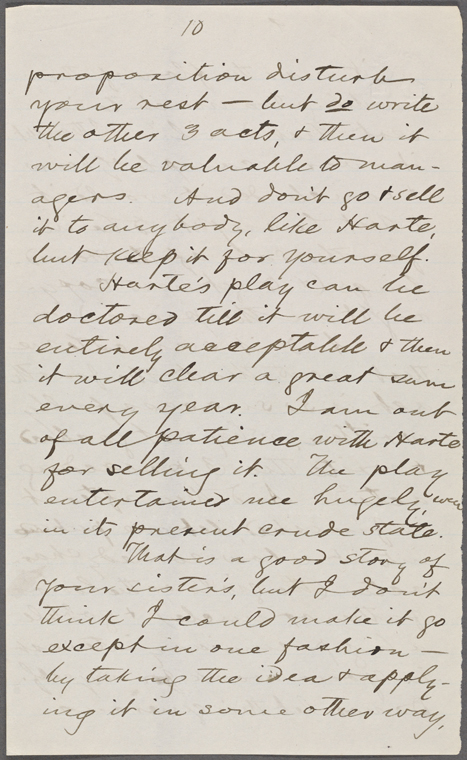 10
proposition disturb
your rest — but do write
the other 3 acts, & then it
will be valuable to man-
agers. And don't go & sell
it to anybody, like Harte,
but keep it for yourself.
Harte's play can be
doctored till it will be
entirely acceptable & then
it will clear a great sum
every year. I am out
of all patience with Harte
for selling it. The play
entertained me hugely, even
in its present crude state.
That is a good story of
your sister's, but I don't
think I could make it go
except in one fashion —
by taking the idea & apply-
ing it in some other way,